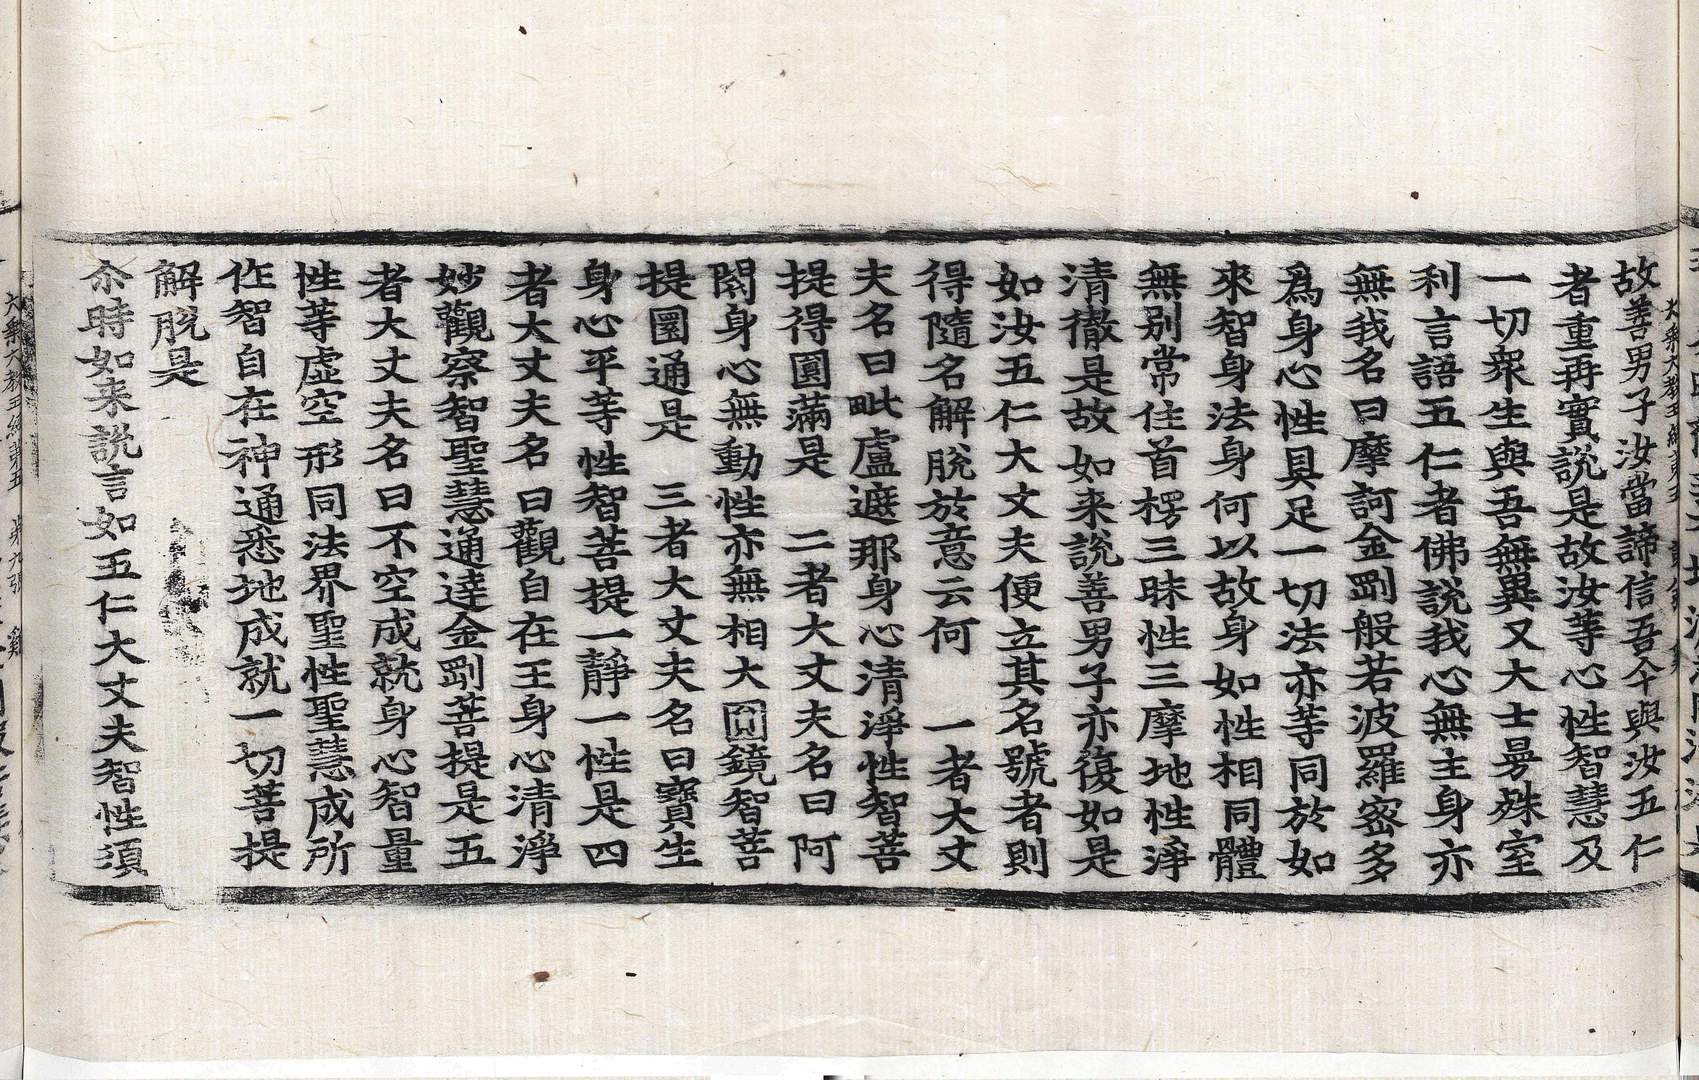 故善男子汝當諦信吾今與汝五仁
者重再實說是故汝等心性智慧及
一切衆生與吾無異又大士曼殊室
利言語五仁者佛說我心無主身亦
無我名曰摩訶金剛般若波羅密多
爲身心性具足一切法亦等同於如
來智身法身何以故身如性相同體
無别常住首楞三昧性三摩地性淨
清徹是故如来說善男子亦復如是
如汝五仁大丈夫便立其名號者則
得隨名解脫於意云何 一者大丈
夫名曰毗盧遮那身心清淨性智菩
提得圓滿是 二者大丈夫名曰阿
閦身心無動性亦無相大圎鏡智菩
提圓通是 三者大丈夫名曰寶生
身心平等性智菩提一靜一性是四
者大丈夫名曰觀自在王身心清淨
妙觀察智聖慧通達金剛菩提是五
者大丈夫名曰不空成就身心智量
性等虛空形同法界聖性聖慧成所
作智自在神通悉地成就一切菩提
解脫是
尒時如来說言如五仁大丈夫智性須
大教王經第五 第九張 雞